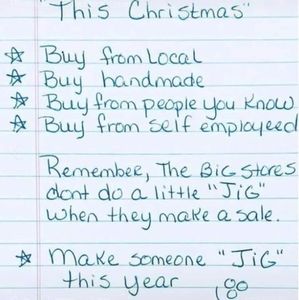 "This Christmas"
☆ Buy from Local
☆ Buy handmade
☆ Buy from people you know
☆ Buy from self employeed
Remember, The BiG stores
dont do a little "JiG"
when they make a sale.
☆ Make someone "JiG"
this year